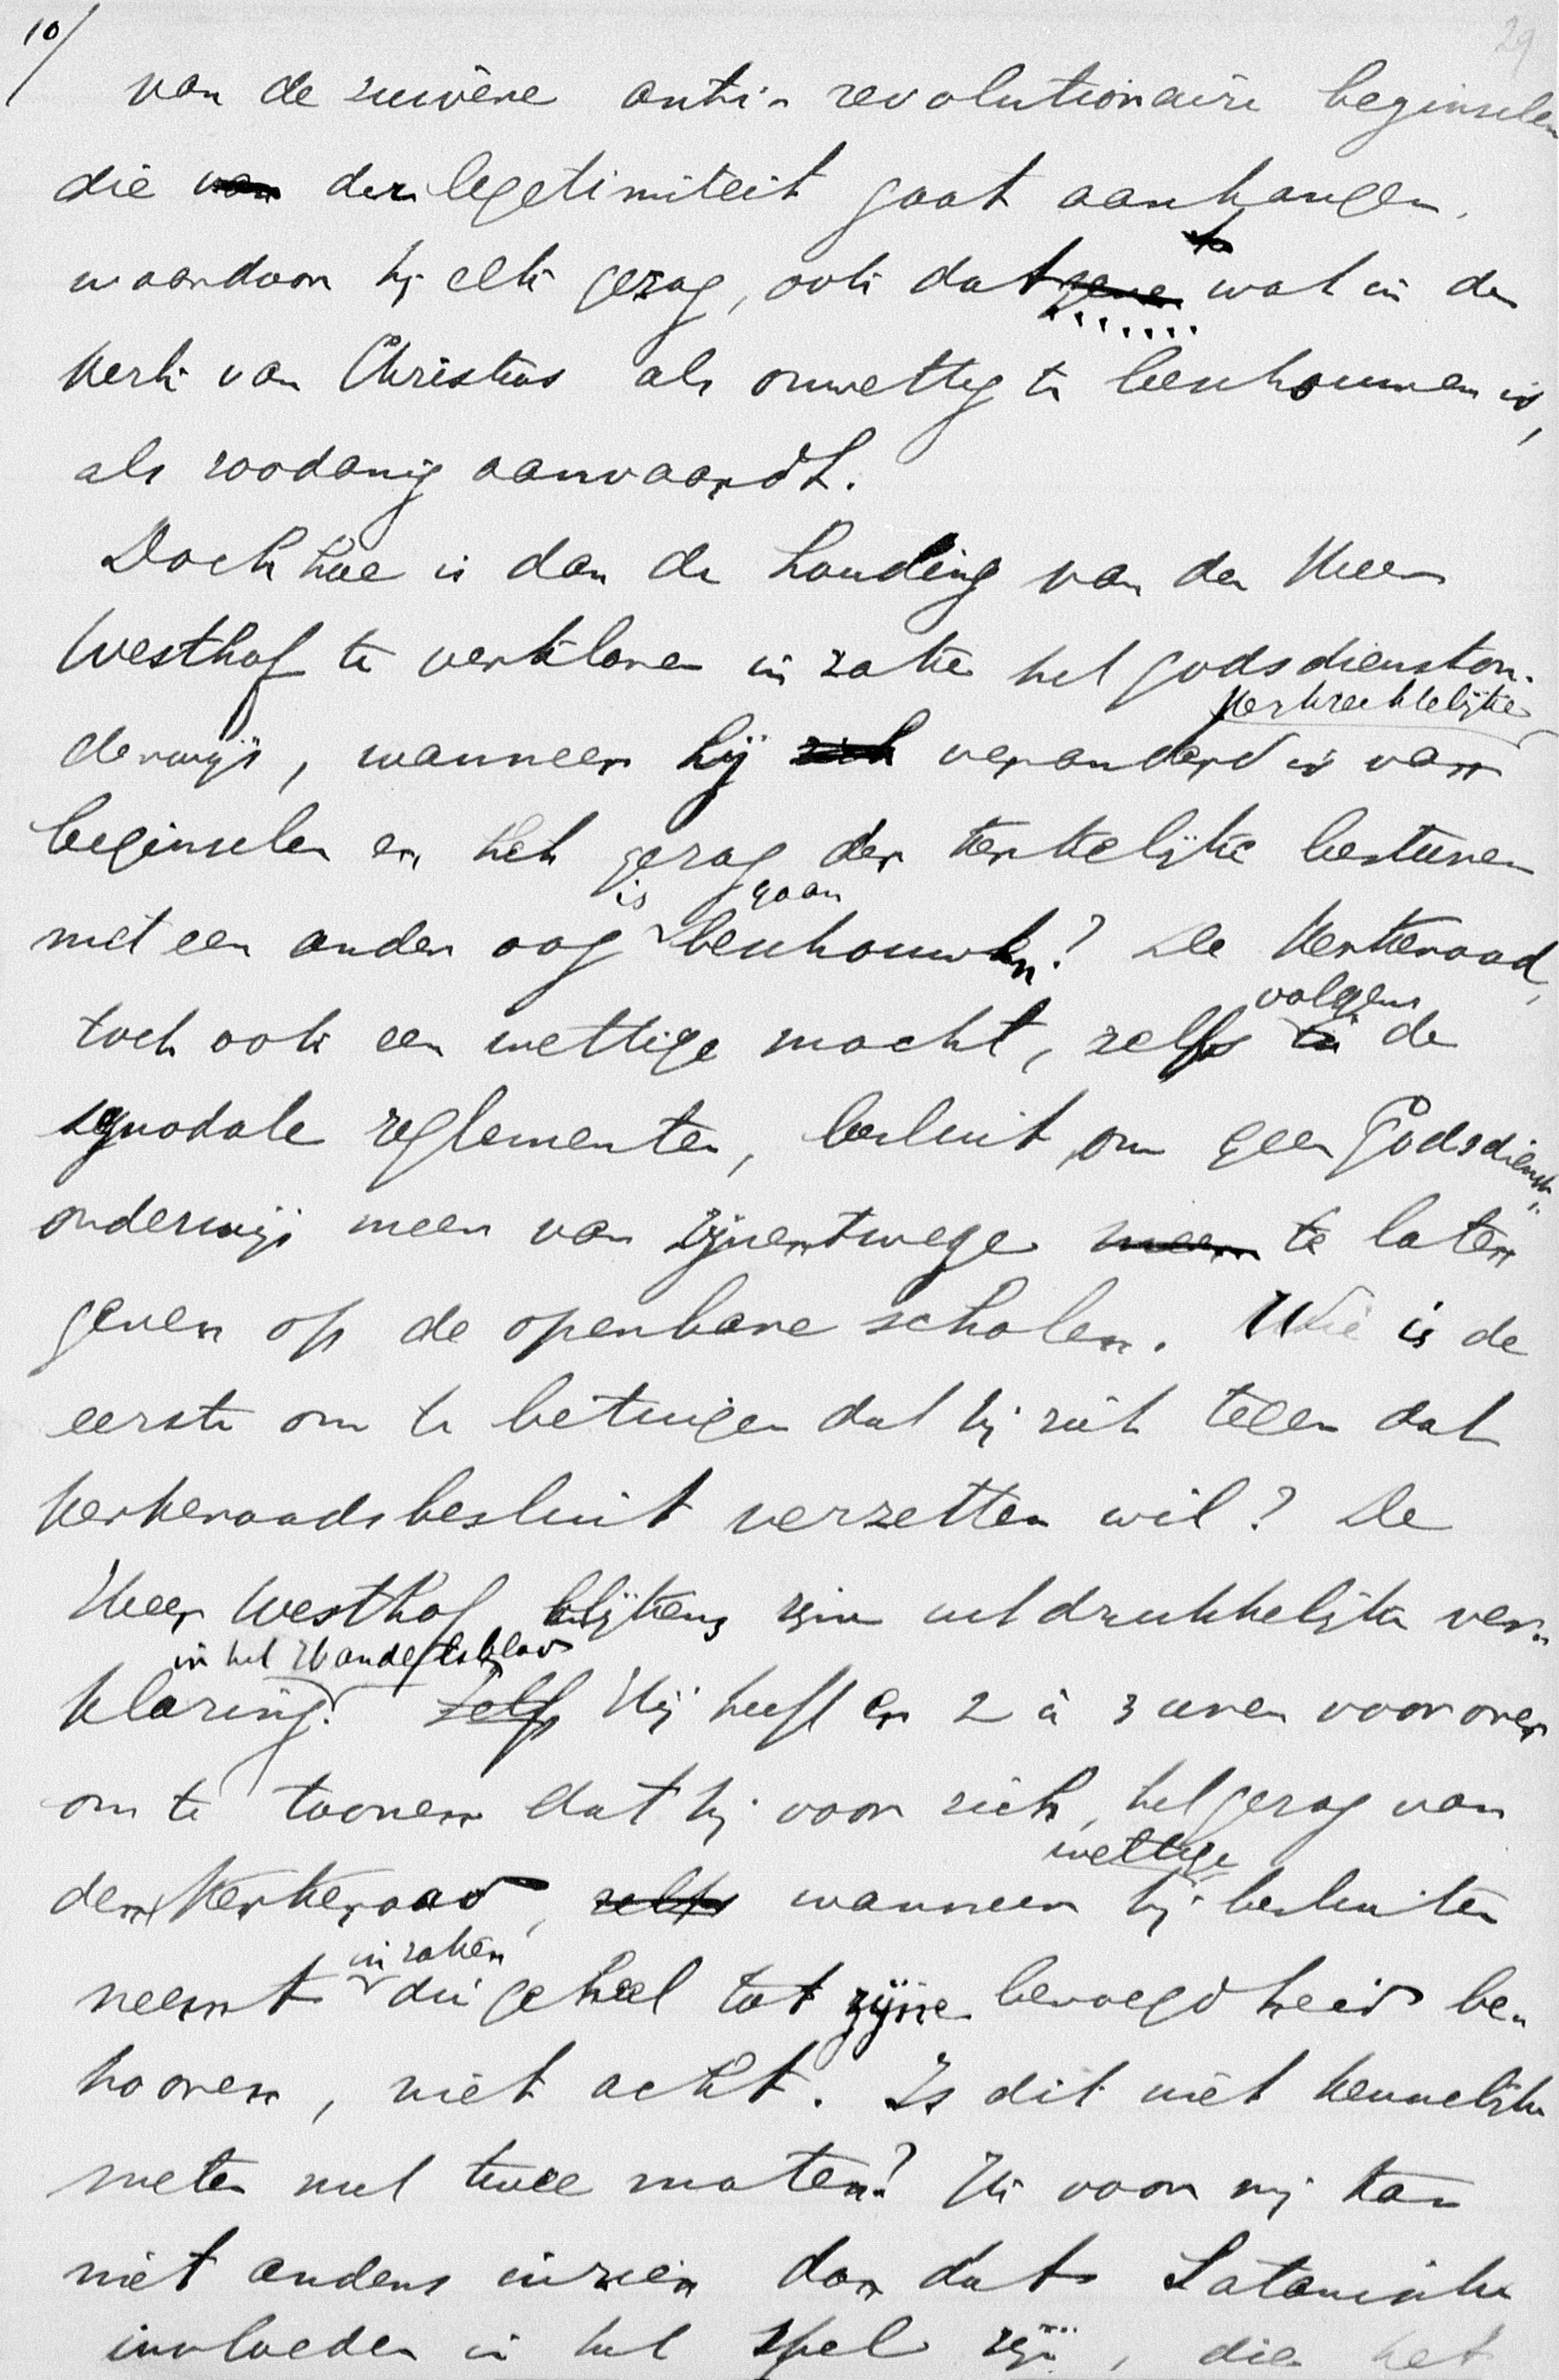 10/
29
van de zuivere anti-revolutionaire beginselen
die der legetimiteit gaat aanhangen,
waardoor hij elk gezag, ook datgene wat in de
Kerk van Christus als onwettig te beschouwen is,
als zoodanig aanvaardt.
Doch hoe is dan de houding van den Heer
Westhof te verklaren in zake het godsdienston-
kerkrechtelijke
derwijs, wanneer hij veranderd is van
beginselen en het gezag der kerkelijke besturen
is gaan
met een ander oog beschouwen? De Kerkeraad,
volgens
toch ook een wettige macht, zelfs de
synodale reglementen, besluit om geen Godsdienst-
onderwijs meer van zijnentwege te laten
geven op de openbare scholen. Wie is de
eerste om te betuigen dat hij zich tegen dat
Kerkeraadsbesluit verzetten wil? De
Heer Westhof, blijkens zijn uitdrukkelijke ver-
in het Handelsblad
klaring. Hij heeft er 2 à 3 uren voor over
om te toonen dat hij voor zich het gezag van
wettige
den Kerkeraad, wanneer hij besluiten
in zaken
neemt die geheel tot zijne bevoegdheid be-
hooren, niet acht. Is dit niet kennelijk
meten met twee maten? Ik voor mij kan
niet anders inzien dan dat Satanische
invloeden in het spel zijn, die het